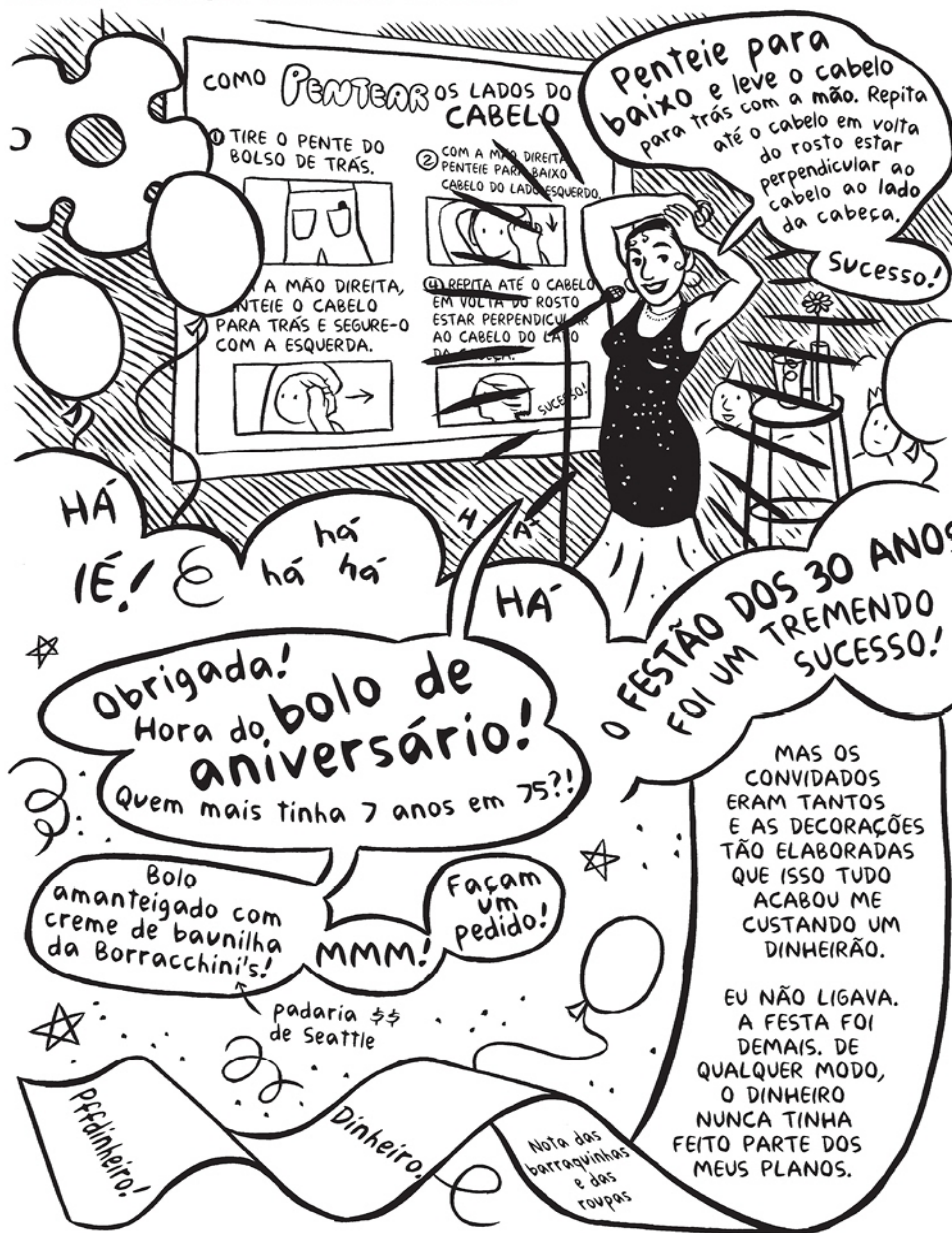 COMO PENTEAR OS LADOS DO
CABELO
① TIRE O PENTE DO
BOLSO DE TRÁS.
② COM A MÃO DIREITA
PENTEIE PARA BAIXO
CABELO DO LADO ESQUERDO.
A MÃO DIREITA,
O CABELO
PARA TRÁS E SEGURE-O
COM A ESQUERDA.
④ REPITA ATÉ O CABELO
EM VOLTA DO ROSTO
ESTAR PERPENDICULAR
AO CABELO DO LADO
DA CABEÇA.
SUCESSO!
Penteie para
baixo e leve o cabelo
para trás com a mão. Repita
até o cabelo em volta
do rosto estar
perpendicular ao
cabelo ao lado
da cabeça.
Sucesso!
HÁ
IÉ!
há
há há
HÁ
HÁ
Obrigada!
Hora do bolo de
aniversário!
Quem mais tinha 7 anos em 75?!
O FESTÃO DOS 30 ANOS
FOI UM TREMENDO
SUCESSO!
Bolo
amanteigado com
creme de baunilha
da Borracchini's!
MMM!
Façam
um
pedido!
padaria $$
de Seattle
MAS OS
CONVIDADOS
ERAM TANTOS
E AS DECORAÇÕES
TÃO ELABORADAS
QUE ISSO TUDO
ACABOU ME
CUSTANDO UM
DINHEIRÃO.
EU NÃO LIGAVA.
A FESTA FOI
DEMAIS. DE
QUALQUER MODO,
O DINHEIRO
NUNCA TINHA
FEITO PARTE DOS
MEUS PLANOS.
Pffdinheiro!
Dinheiro!
Nota das
barraquinhas
e das
roupas